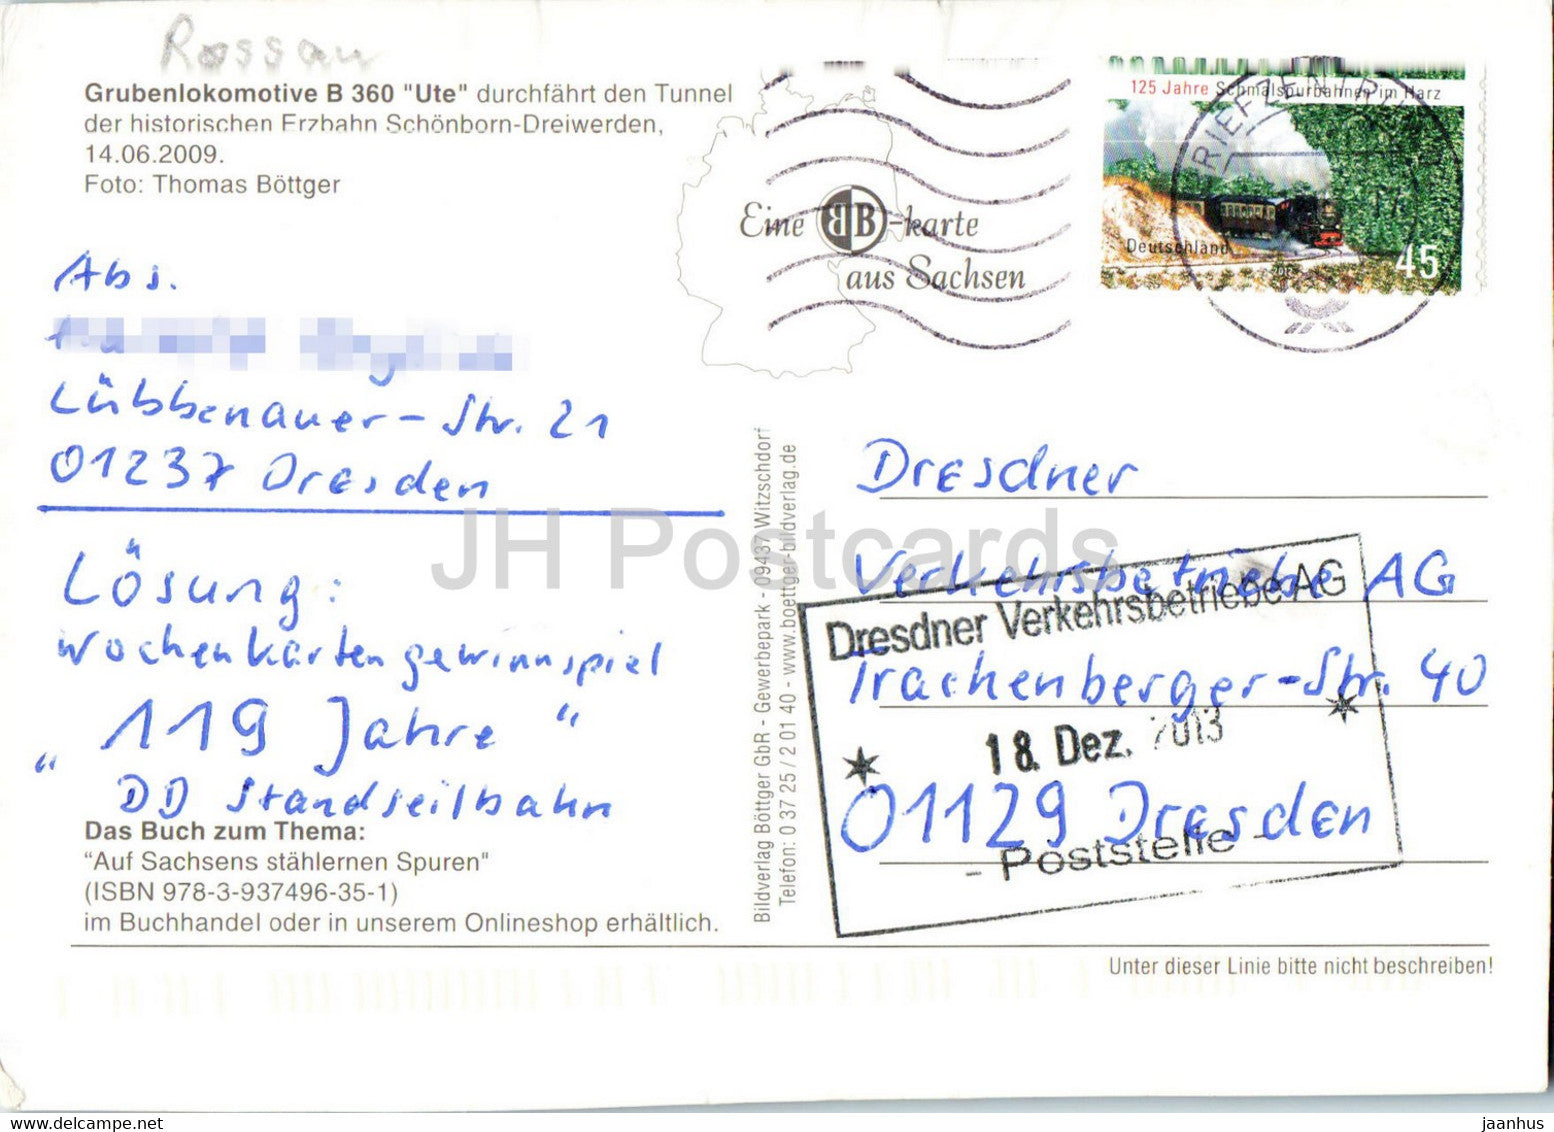 Rossau
Grubenlokomotive B 360 "Ute" durchfährt den Tunnel
der historischen Erzbahn Schönborn-Dreiwerden,
14.06.2009.
Foto: Thomas Böttger
Eine BB-karte
aus Sachsen
125 Jahre Schmalspurbahnen im Harz
Deutschland
45
BRIEFZENTRUM
Abs.
Lübbenauer-Str. 21
01237 Dresden
Lösung:
Wochenkartengewinnspiel
„119 Jahre“
DD Standseilbahn
Das Buch zum Thema:
"Auf Sachsens stählernen Spuren"
(ISBN 978-3-937496-35-1)
im Buchhandel oder in unserem Onlineshop erhältlich.
Bildverlag Böttger GbR - Gewerbepark - 09437 Witzschdorf
Telefon: 0 37 25 / 2 01 40 - www.boettger-bildverlag.de
Dresdner
Verkehrsbetriebe AG
Trachenberger-Str. 40
01129 Dresden
Dresdner Verkehrsbetriebe AG
18. Dez. 2013
- Poststelle -
Unter dieser Linie bitte nicht beschreiben!
JH Postcards
www.delcampe.net
jaanhus